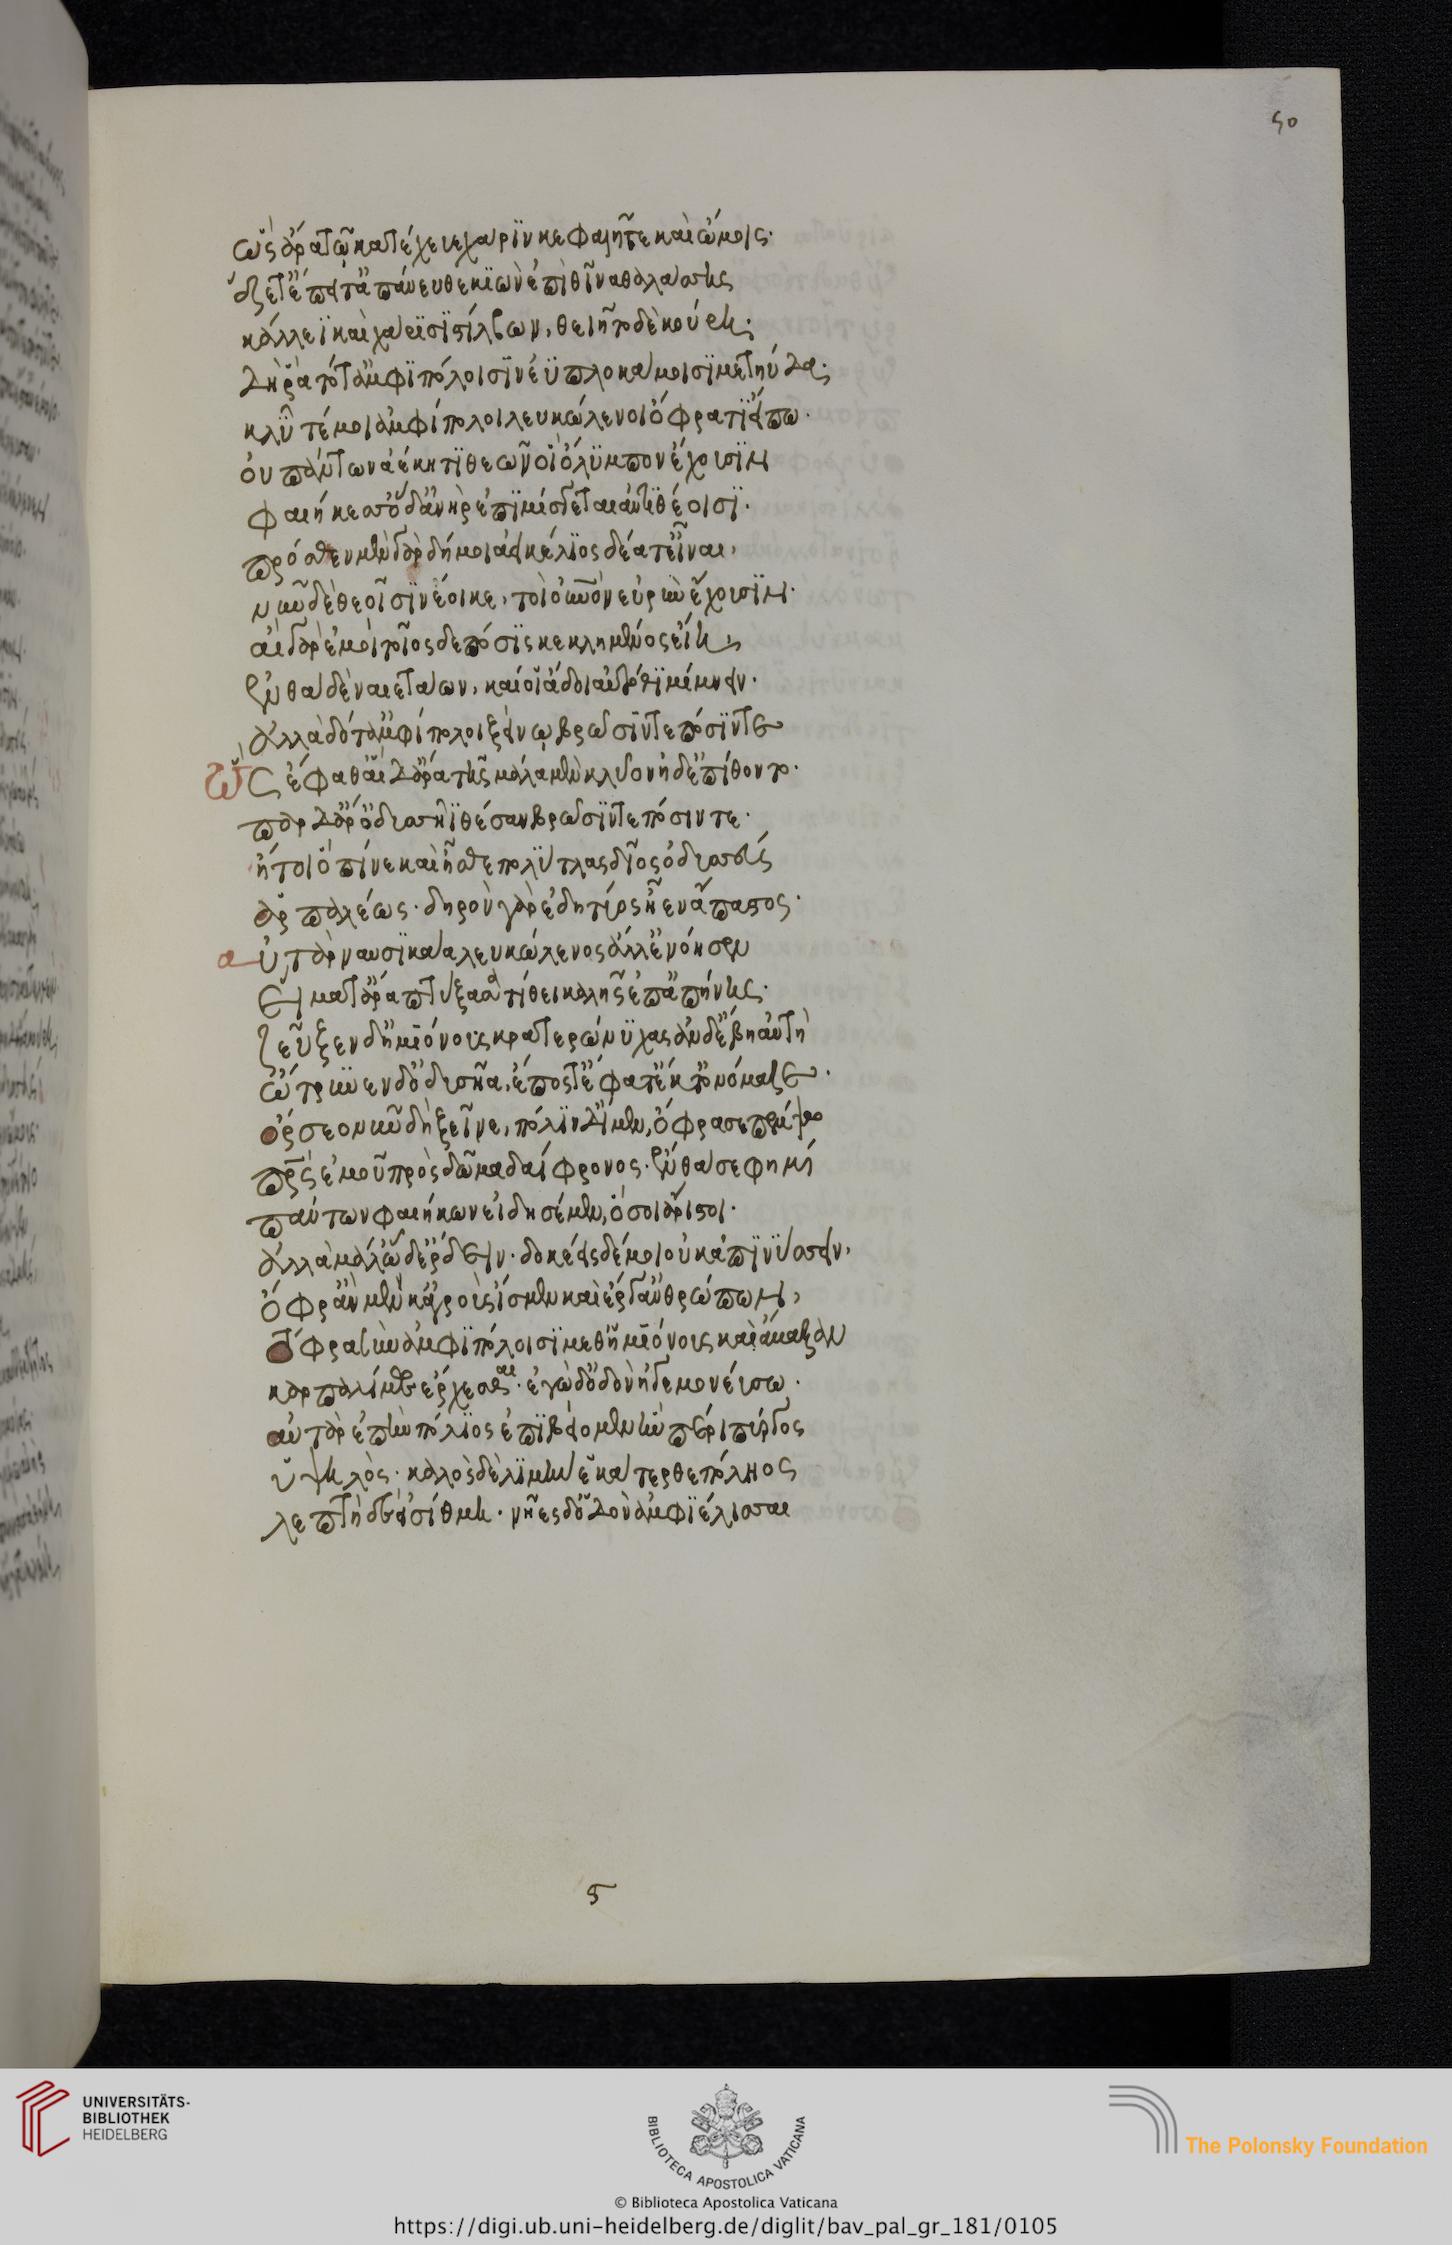 50
ὣς ἄρα τῷ κατέχευε χάριν κεφαλῇ τε καὶ ὤμοις·
ἕζετ' ἔπειτ' ἀπάνευθε κιὼν ἐπὶ θῖνα θαλάσσης
κάλλεϊ καὶ χάρισι στίλβων, θηεῖτο δὲ κούρη·
δή ῥα τότ' ἀμφιπόλοισιν ἐϋπλοκάμοισι μετηύδα·
κλῦτέ μοι ἀμφίπολοι λευκώλενοι ὄφρα τι εἴπω·
οὐ πάντων ἀέκητι θεῶν οἳ ὄλυμπον ἔχουσιν
φαιήκεσσ' ὅδ' ἀνὴρ ἐπιμίσγεται ἀντιθέοισι·
πρόσθεν μὲν γὰρ δή μοι ἀεικέλιος δέατ' εἶναι,
νῦν δὲ θεοῖσιν ἔοικε, τοὶ οὐρανὸν εὐρὺν ἔχουσιν·
αἲ γὰρ ἐμοὶ τοῖος δε πόσις κεκλημένος εἴη,
ἐνθάδε ναιετάων, καί οἱ ἅδοι αὐτόθι μίμνειν·
ἀλλὰ δότ' ἀμφίπολοι ξείνῳ βρῶσίν τε πόσιν τε
ὣς ἔφαθ' αἱ δ' ἄρα τῆς μάλα μὲν κλύον ἠδ' ἐπίθοντο·
πὰρ δ' ἄρ' ὀδυσσῆϊ θέσαν βρῶσίν τε πόσιν τε·
ἤτοι ὁ πῖνε καὶ ἦσθε πολύτλας δῖος ὀδυσσεύς
ἁρπαλέως· δηρὸν γὰρ ἐδητύος ἦεν ἄπαστος·
αὐτὰρ ναυσικάα λευκώλενος ἄλλ' ἐνόησεν
εἵματ' ἄρα πτύξασα τίθει καλῆς ἐπ' ἀπήνης·
ζεῦξεν δ' ἡμιόνους κρατερώνυχας ἂν δ' ἔβη αὐτὴ
ὤτρυνεν δ' ὀδυσῆα, ἔπος τ' ἔφατ' ἔκ τ' ὀνόμαζε·
ὄρσεο νῦν δὴ ξεῖνε, πόλιν δ' ἴμεν, ὄφρα σε πέμψω
πρὸς ἐμοῦ πρὸς δῶμα δαΐφρονος· ἔνθα σε φημί
πάντων φαιήκων εἰδησέμεν, ὅσοι ἄριστοι·
ἀλλὰ μάλ' ὧδ' ἔρδειν· δοκέεις δέ μοι οὐκ ἀπινύσσειν,
ὄφρ' ἂν μέν κ' ἀγροὺς ἴομεν καὶ ἔργ' ἀνθρώπων,
τόφρα σὺν ἀμφιπόλοισι μεθ' ἡμιόνους καὶ ἄμαξαν
καρπαλίμως ἔρχεσθαι· ἐγὼ δ' ὁδὸν ἡγεμονεύσω·
αὐτὰρ ἐπὴν πόλιος ἐπιβείομεν ἣν πέρι πύργος
ὑψηλὸς· καλὸς δὲ λιμὴν ἑκάτερθε πόληος
λεπτὴ δ' εἰσίθμη· νῆες δ' ὁδὸν ἀμφιέλισσαι
5
UNIVERSITÄTS-
BIBLIOTHEK
HEIDELBERG
BIBLIOTECA APOSTOLICA VATICANA
The Polonsky Foundation
© Biblioteca Apostolica Vaticana
https://digi.ub.uni-heidelberg.de/diglit/bav_pal_gr_181/0105